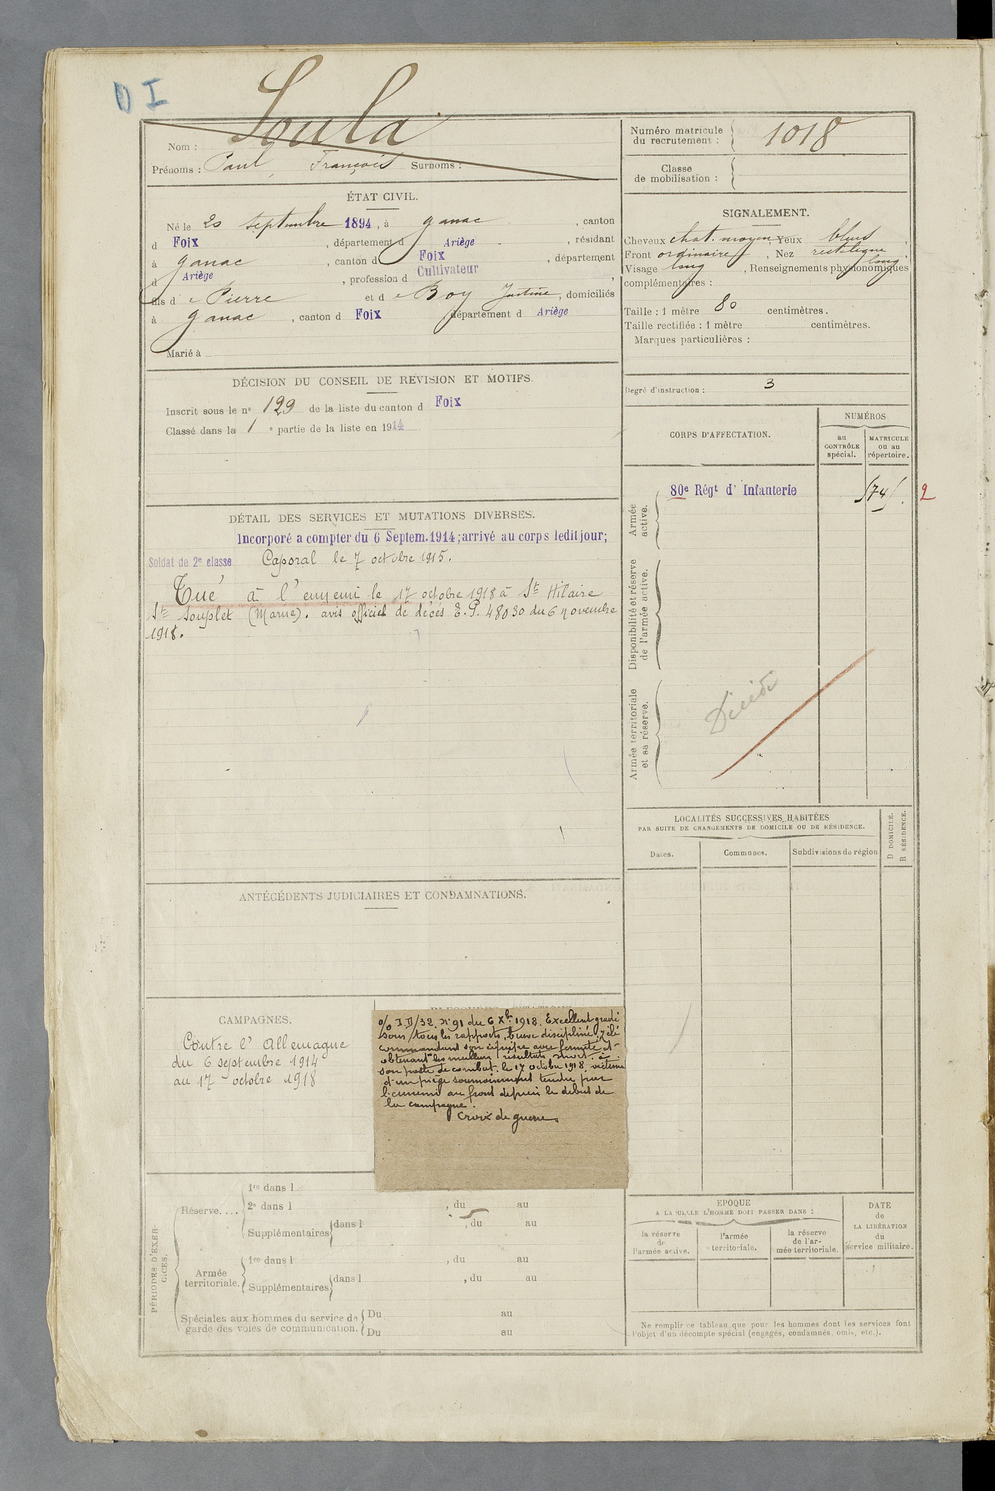 D I
Soula
Nom :
Prénoms : Paul, François Surnoms :
Numéro matricule
du recrutement :
1018
Classe
de mobilisation :
ÉTAT CIVIL.
Né le 20 septembre 1894, à ganac, canton
d Foix, département d Ariège, résidant
à ganac, canton d Foix, département
d Ariège, profession d Cultivateur,
fils d e Pierre et d e Boy Justine, domiciliés
à ganac, canton d Foix, département d Ariège
Marié à
SIGNALEMENT.
Cheveux chat. moyen Yeux bleus,
Front ordinaire, Nez rectiligne
long.
Visage long, Renseignements physionomiques
complémentaires :
Taille : 1 mètre 80 centimètres.
Taille rectifiée : 1 mètre centimètres.
Marques particulières :
Degré d'instruction : 3
DÉCISION DU CONSEIL DE REVISION ET MOTIFS.
Inscrit sous le nº 129 de la liste du canton d Foix
Classé dans la 1 e partie de la liste en 1914
CORPS D'AFFECTATION.
NUMÉROS
au
CONTRÔLE
spécial.
MATRICULE
ou au
répertoire.
Armée
active.
80e Régt d' Infanterie
574 . 2
Disponibilité et réserve
de l'armée active.
Armée territoriale
et sa réserve.
Décédé
DÉTAIL DES SERVICES ET MUTATIONS DIVERSES.
Incorporé à compter du 6 Septem. 1914; arrivé au corps ledit jour;
Soldat de 2e classe Caporal le 7 octobre 1915.
Tué à l'ennemi le 17 octobre 1918 à St Hilaire
St Souplet (Marne). avis officiel de décès E.P. 48030 du 6 novembre
1918.
LOCALITÉS SUCCESSIVES HABITÉES
PAR SUITE DE CHANGEMENTS DE DOMICILE OU DE RÉSIDENCE.
Dates.
Communes.
Subdivisions de région
D DOMICILE.
R RÉSIDENCE.
ANTÉCÉDENTS JUDICIAIRES ET CONDAMNATIONS.
CAMPAGNES.
Contre l'Allemagne
du 6 septembre 1914
au 17 octobre 1918
nº 91 du 6 Xbre 1918. Excellent gradé
sous tous les rapports, brave discipliné, zélé
commandant son équipe avec fermeté et
obtenant les meilleurs résultats. Mort à
son poste de combat, le 17 octobre 1918, victime
d'un piège sournoisement tendu par
l'ennemi au front depuis le début de
la campagne.
Croix de guerre
PÉRIODES D'EXERCICES.
Réserve....
1re dans l
2e dans l , du au
Supplémentaires dans l , du au
Armée
territoriale.
1re dans l , du au
Supplémentaires dans l , du au
Spéciales aux hommes du service de
garde des voies de communication.
Du au
Du au
EPOQUE
A LAQUELLE L'HOMME DOIT PASSER DANS :
la réserve
de
l'armée active.
l'armée
territoriale.
la réserve
de l'ar-
mée territoriale.
DATE
de
LA LIBÉRATION
du
service militaire.
Ne remplir ce tableau que pour les hommes dont les services font
l'objet d'un décompte spécial (engagés, condamnés, omis, etc.).